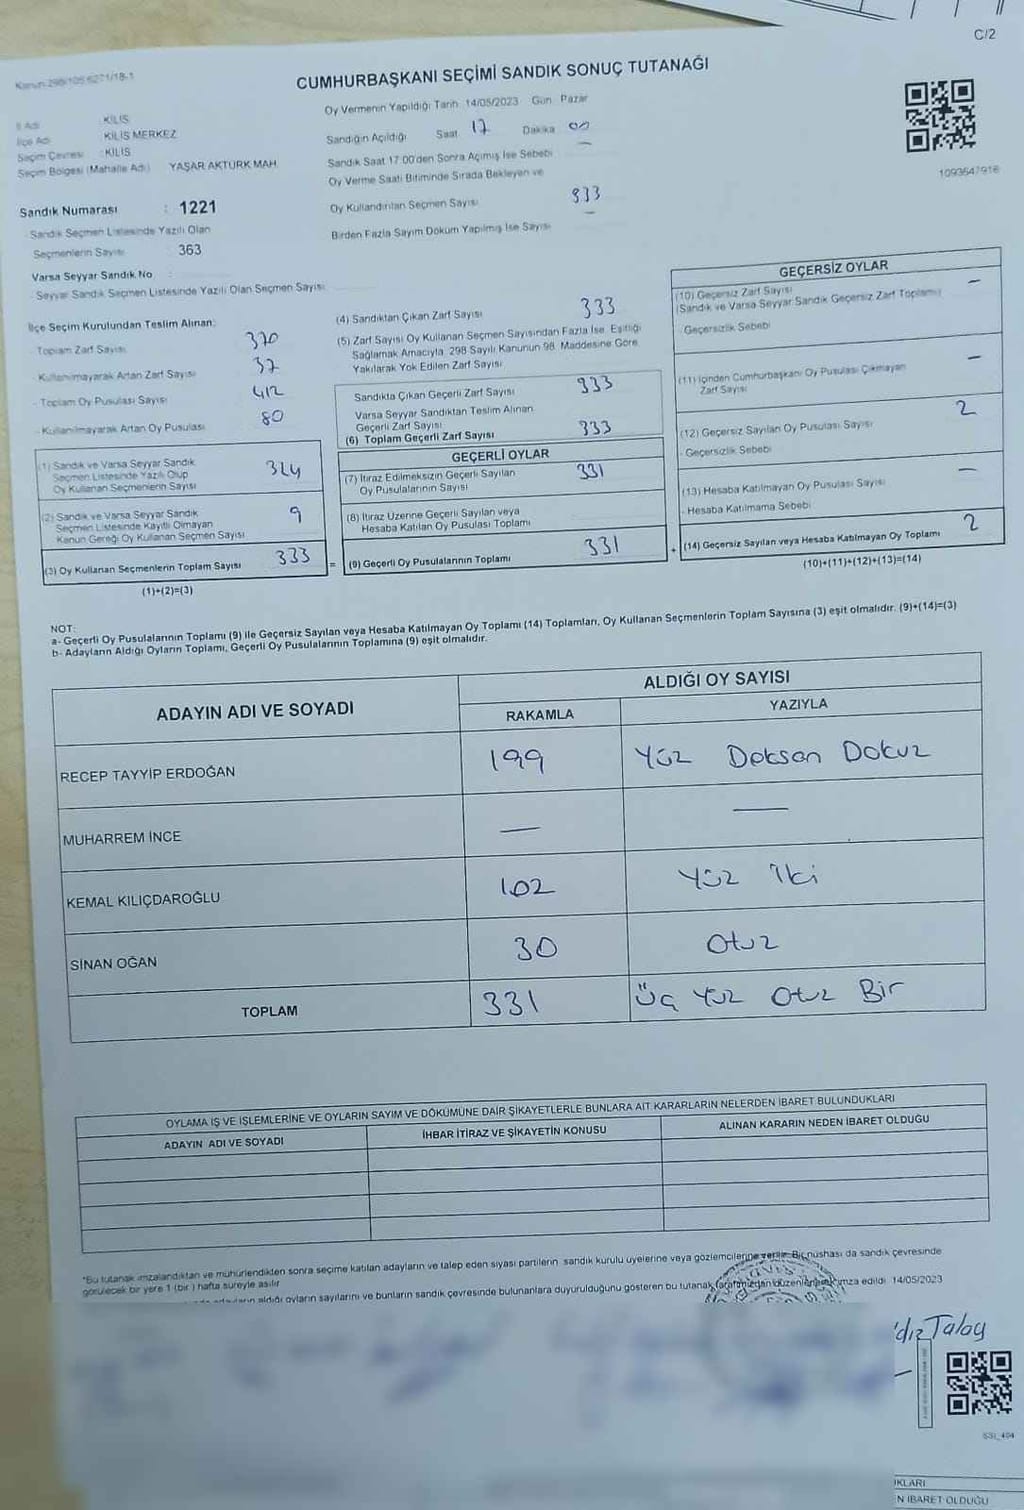 C/2
Kanun-298/105 6271/18-1
CUMHURBAŞKANI SEÇİMİ SANDIK SONUÇ TUTANAĞI
İl Adı : KİLİS
İlçe Adı : KİLİS MERKEZ
Seçim Çevresi : KİLİS
Seçim Bölgesi (Mahalle Adı) YAŞAR AKTÜRK MAH.
Sandık Numarası : 1221
Sandık Seçmen Listesinde Yazılı Olan
Seçmenlerin Sayısı 363
Varsa Seyyar Sandık No :
Seyyar Sandık Seçmen Listesinde Yazılı Olan Seçmen Sayısı
Oy Vermenin Yapıldığı Tarih 14/05/2023 Gün Pazar
Sandığın Açıldığı Saat 17 Dakika 00
Sandık Saat 17.00'den Sonra Açılmış İse Sebebi —
Oy Verme Saati Bitiminde Sırada Bekleyen ve
Oy Kullandırılan Seçmen Sayısı 333
Birden Fazla Sayım Döküm Yapılmış İse Sayısı —
1093647916
İlçe Seçim Kurulundan Teslim Alınan:
- Toplam Zarf Sayısı 370
- Kullanılmayarak Artan Zarf Sayısı 37
- Toplam Oy Pusulası Sayısı 412
- Kullanılmayarak Artan Oy Pusulası 80
(1) Sandık ve Varsa Seyyar Sandık
Seçmen Listesinde Yazılı Olup
Oy Kullanan Seçmenlerin Sayısı 324
(2) Sandık ve Varsa Seyyar Sandık
Seçmen Listesinde Kayıtlı Olmayan
Kanun Gereği Oy Kullanan Seçmen Sayısı 9
(3) Oy Kullanan Seçmenlerin Toplam Sayısı 333
(1)+(2)=(3)
(4) Sandıktan Çıkan Zarf Sayısı 333
(5) Zarf Sayısı Oy Kullanan Seçmen Sayısından Fazla İse, Eşitliği
Sağlamak Amacıyla, 298 Sayılı Kanunun 98. Maddesine Göre
Yakılarak Yok Edilen Zarf Sayısı
Sandıkta Çıkan Geçerli Zarf Sayısı 333
Varsa Seyyar Sandıktan Teslim Alınan
Geçerli Zarf Sayısı
(6) Toplam Geçerli Zarf Sayısı 333
GEÇERLİ OYLAR
(7) İtiraz Edilmeksizin Geçerli Sayılan
Oy Pusulalarının Sayısı 331
(8) İtiraz Üzerine Geçerli Sayılan veya
Hesaba Katılan Oy Pusulası Toplamı
= (9) Geçerli Oy Pusulalarının Toplamı 331
GEÇERSİZ OYLAR
(10) Geçersiz Zarf Sayısı —
(Sandık ve Varsa Seyyar Sandık Geçersiz Zarf Toplamı)
- Geçersizlik Sebebi
(11) İçinden Cumhurbaşkanı Oy Pusulası Çıkmayan —
Zarf Sayısı
(12) Geçersiz Sayılan Oy Pusulası Sayısı 2
- Geçersizlik Sebebi
(13) Hesaba Katılmayan Oy Pusulası Sayısı —
- Hesaba Katılmama Sebebi
+ (14) Geçersiz Sayılan veya Hesaba Katılmayan Oy Toplamı 2
(10)+(11)+(12)+(13)=(14)
NOT:
a- Geçerli Oy Pusulalarının Toplamı (9) ile Geçersiz Sayılan veya Hesaba Katılmayan Oy Toplamı (14) Toplamları, Oy Kullanan Seçmenlerin Toplam Sayısına (3) eşit olmalıdır. (9)+(14)=(3)
b- Adayların Aldığı Oyların Toplamı, Geçerli Oy Pusulalarının Toplamına (9) eşit olmalıdır.
ADAYIN ADI VE SOYADI ALDIĞI OY SAYISI
RAKAMLA YAZIYLA
RECEP TAYYİP ERDOĞAN 199 Yüz Doksan Dokuz
MUHARREM İNCE — —
KEMAL KILIÇDAROĞLU 102 Yüz İki
SİNAN OĞAN 30 Otuz
TOPLAM 331 Üç Yüz Otuz Bir
OYLAMA İŞ VE İŞLEMLERİNE VE OYLARIN SAYIM VE DÖKÜMÜNE DAİR ŞİKAYETLERLE BUNLARA AİT KARARLARIN NELERDEN İBARET BULUNDUKLARI
ADAYIN ADI VE SOYADI İHBAR İTİRAZ VE ŞİKAYETİN KONUSU ALINAN KARARIN NEDEN İBARET OLDUĞU
*Bu tutanak imzalandıktan ve mühürlendikten sonra seçime katılan adayların ve talep eden siyasi partilerin sandık kurulu üyelerine veya gözlemcilerine verilir. Bir nüshası da sandık çevresinde
görülecek bir yere 1 (bir) hafta süreyle asılır
aldığı oyların sayılarını ve bunların sandık çevresinde bulunanlara duyurulduğunu gösteren bu tutanak tarafımızdan düzenlenerek imza edildi. 14/05/2023
Talay
SSI_404
N İBARET OLDUĞU